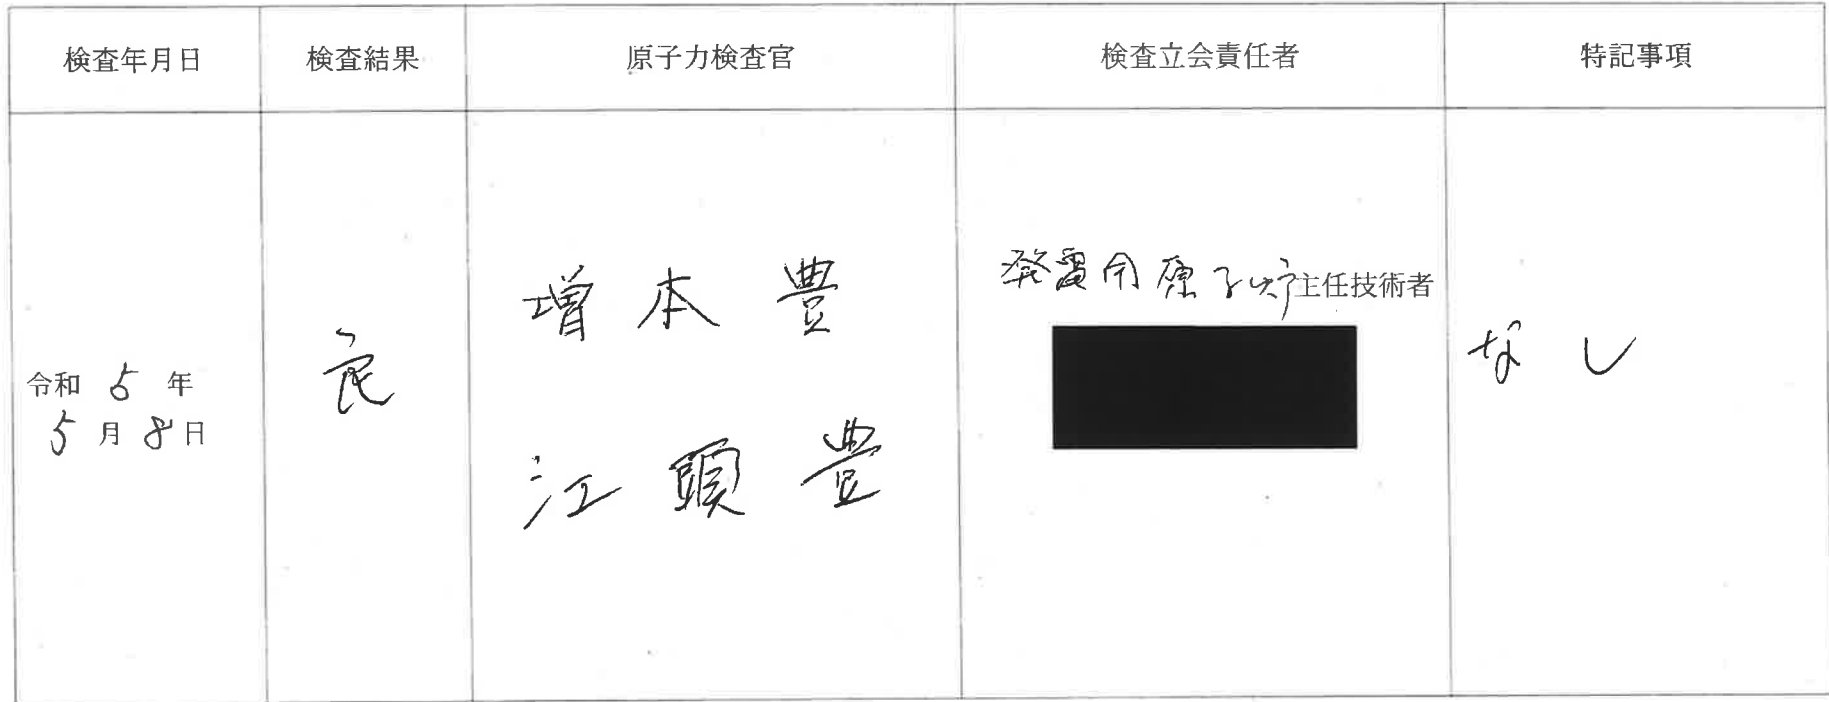 検査年月日 検査結果 原子力検査官 検査立会責任者 特記事項
令和 5 年
5 月 8 日
良
増本 豊
江頭 豊
発電用原子炉主任技術者
なし